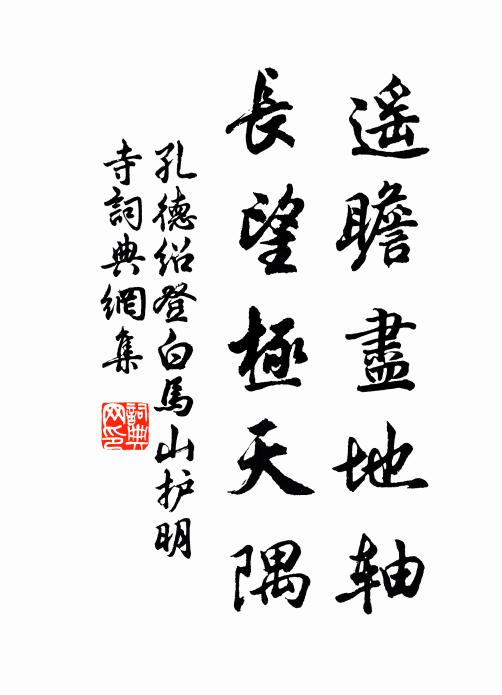 遥瞻盡地轴
長望極天隅
孔德绍登白馬山护明
寺詞典網集
詞典
网印